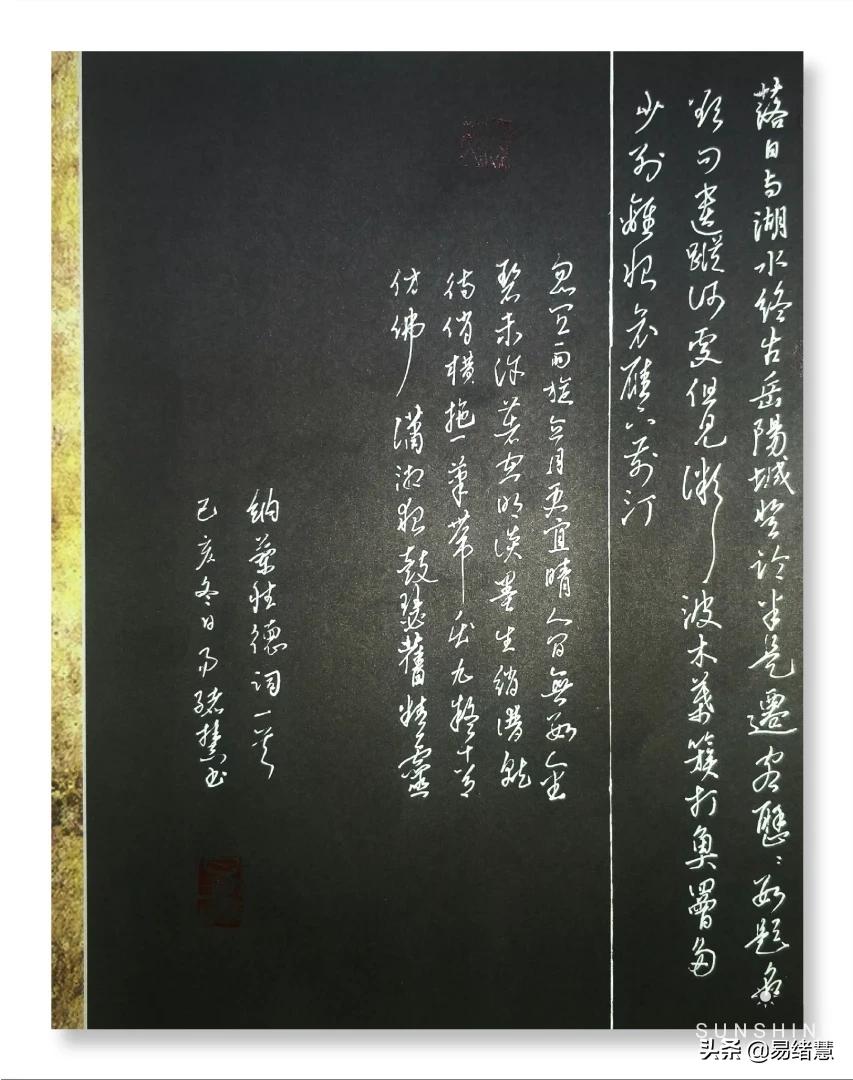 落日与湖水終古岳陽城登临半是遷客歷〻数题名
欲问遺蹤何處但見微波木葉簇打魚罾多
少别離恨哀雁下前汀
忽宜雨旋宜月更宜晴人间無数金
碧未许著空明淡墨生綃谱就
待俏横拖一筆带出九疑青
仿佛瀟湘夜鼓瑟舊精靈
納蘭性德词一首
己亥冬日易绪慧书
SUNSHIN
头条 @易绪慧